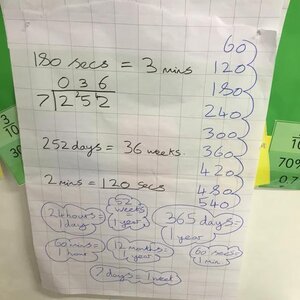 180 secs = 3 mins
036
7 2²5⁴2
252 days = 36 weeks.
2 mins = 120 secs
60
120
180
240
300
360
420
480
540
24 hours = 1 day
52 weeks 1 year
365 days = 1 year
60 mins = 1 hour
12 months = 1 year
60 secs = 1 min
7 days = 1 week
3
10
30
10
70%
0.7